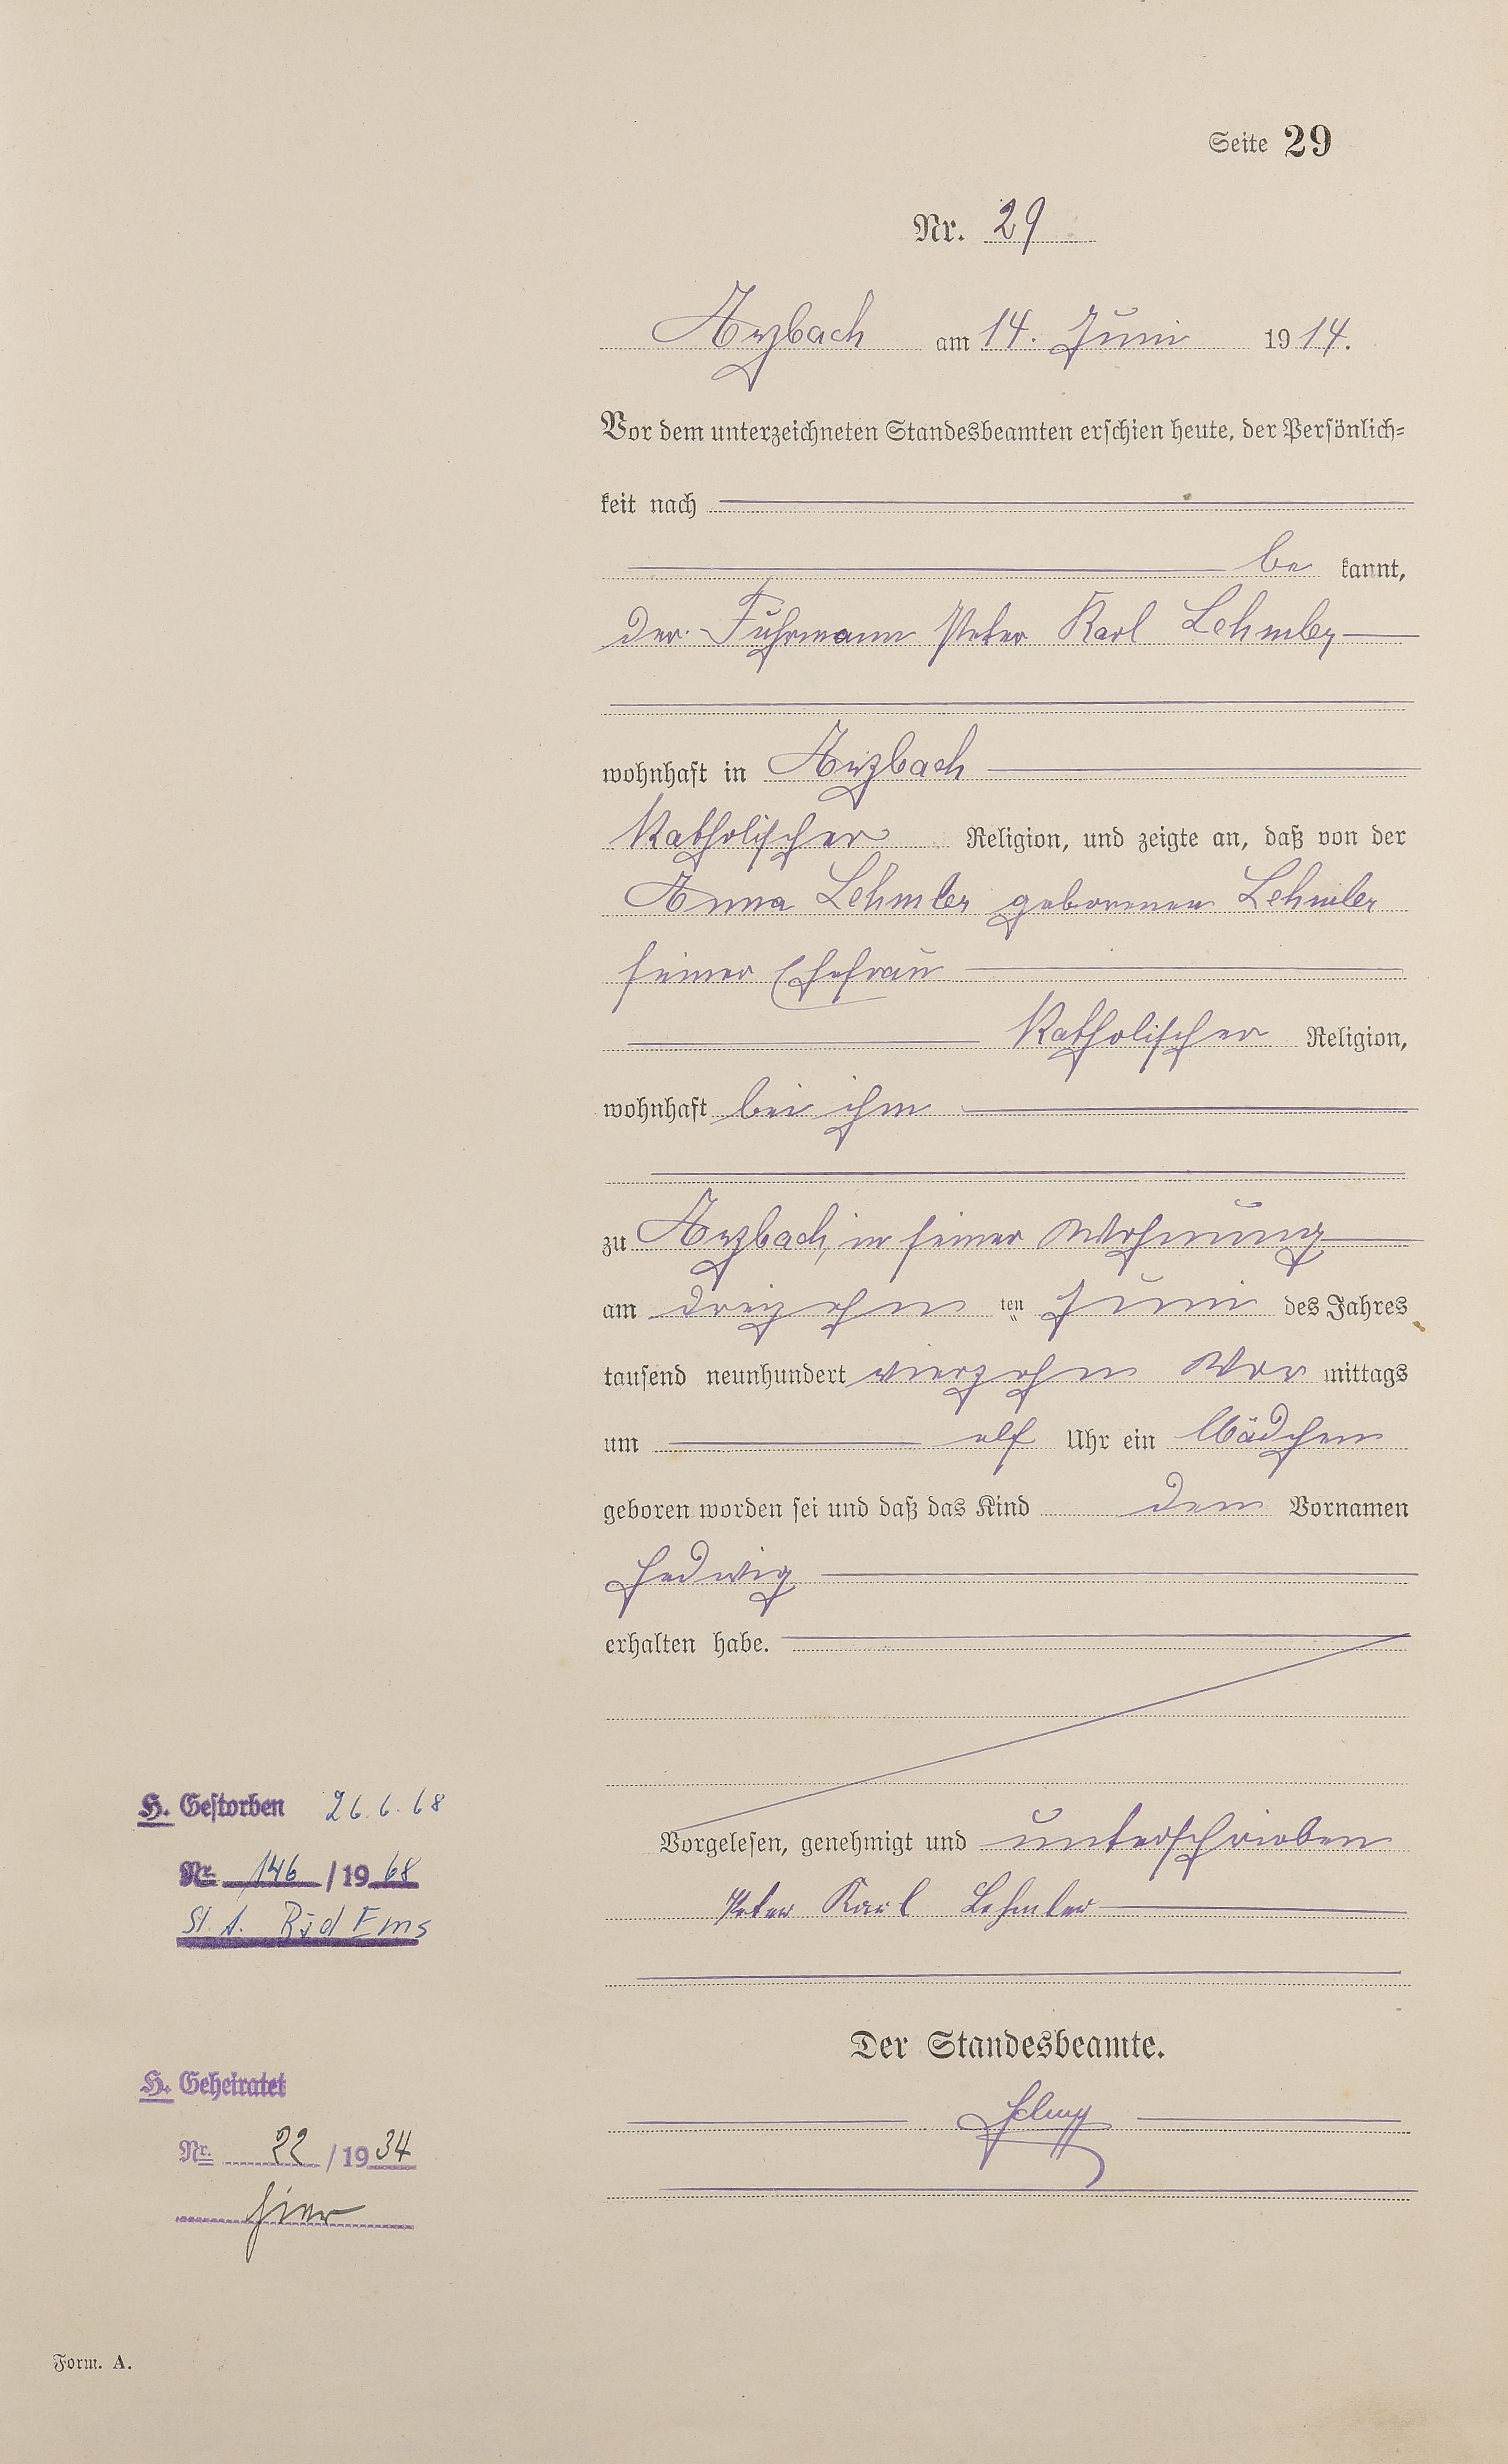 Seite 29
Nr. 29
Arzbach am 14. Juni 1914.
Vor dem unterzeichneten Standesbeamten erschien heute, der Persönlich=
keit nach
be kannt,
der Fuhrmann Peter Karl Lehmler
wohnhaft in Arzbach
katholischer Religion, und zeigte an, daß von der
Anna Lehmler geborenen Lehmler
seiner Ehefrau
katholischer Religion,
wohnhaft bei ihm
zu Arzbach, in seiner Wohnung
am dreizehn ten Juni des Jahres
tausend neunhundert vierzehn Vor mittags
um elf Uhr ein Mädchen
geboren worden sei und daß das Kind den Vornamen
Hedwig
erhalten habe.
Vorgelesen, genehmigt und unterschrieben
Peter Karl Lehmler
Der Standesbeamte.
H. Gestorben 26.6.68
Nr. 146 / 1968
St. A. Bad Ems
H. Geheiratet
Nr. 22 / 1934
hier
Form. A.